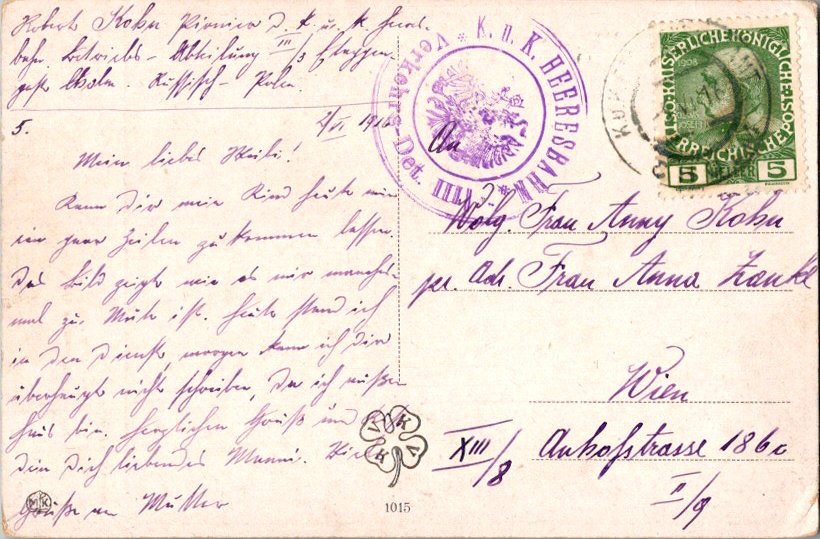 Robert Kohn Pionier d. k. u. k. Heeres-
bahn Betriebs-Abteilung III/3 Etappen-
post Cholm. Russisch-Polen.
5. 2/VI 1916
Mein liebes Weibi!
Kann dir mein Kind heute nur
ein paar Zeilen zukommen lassen.
Das Bild zeigt wie es mir manches-
mal zu Mute ist. Heute stand ich
in den Dienst, morgen kann ich dir
überhaupt nicht schreiben, da ich außer
Haus bin. Herzlichen Gruß und
dein dich liebendes Manni. Viele
Grüße an Mutter
K. u. K. HEERESBAHN
Verkehrs-Det.
KAISERLICHE KÖNIGLICHE
ÖSTERREICHISCHE POST
1908
5 HELLER 5
An
Wolg. Frau Anny Kohn
pr. Adr. Frau Anna Zankl
Wien
XIII/8 Auhofstrasse 186c
II/9
K V K V
MK
1015